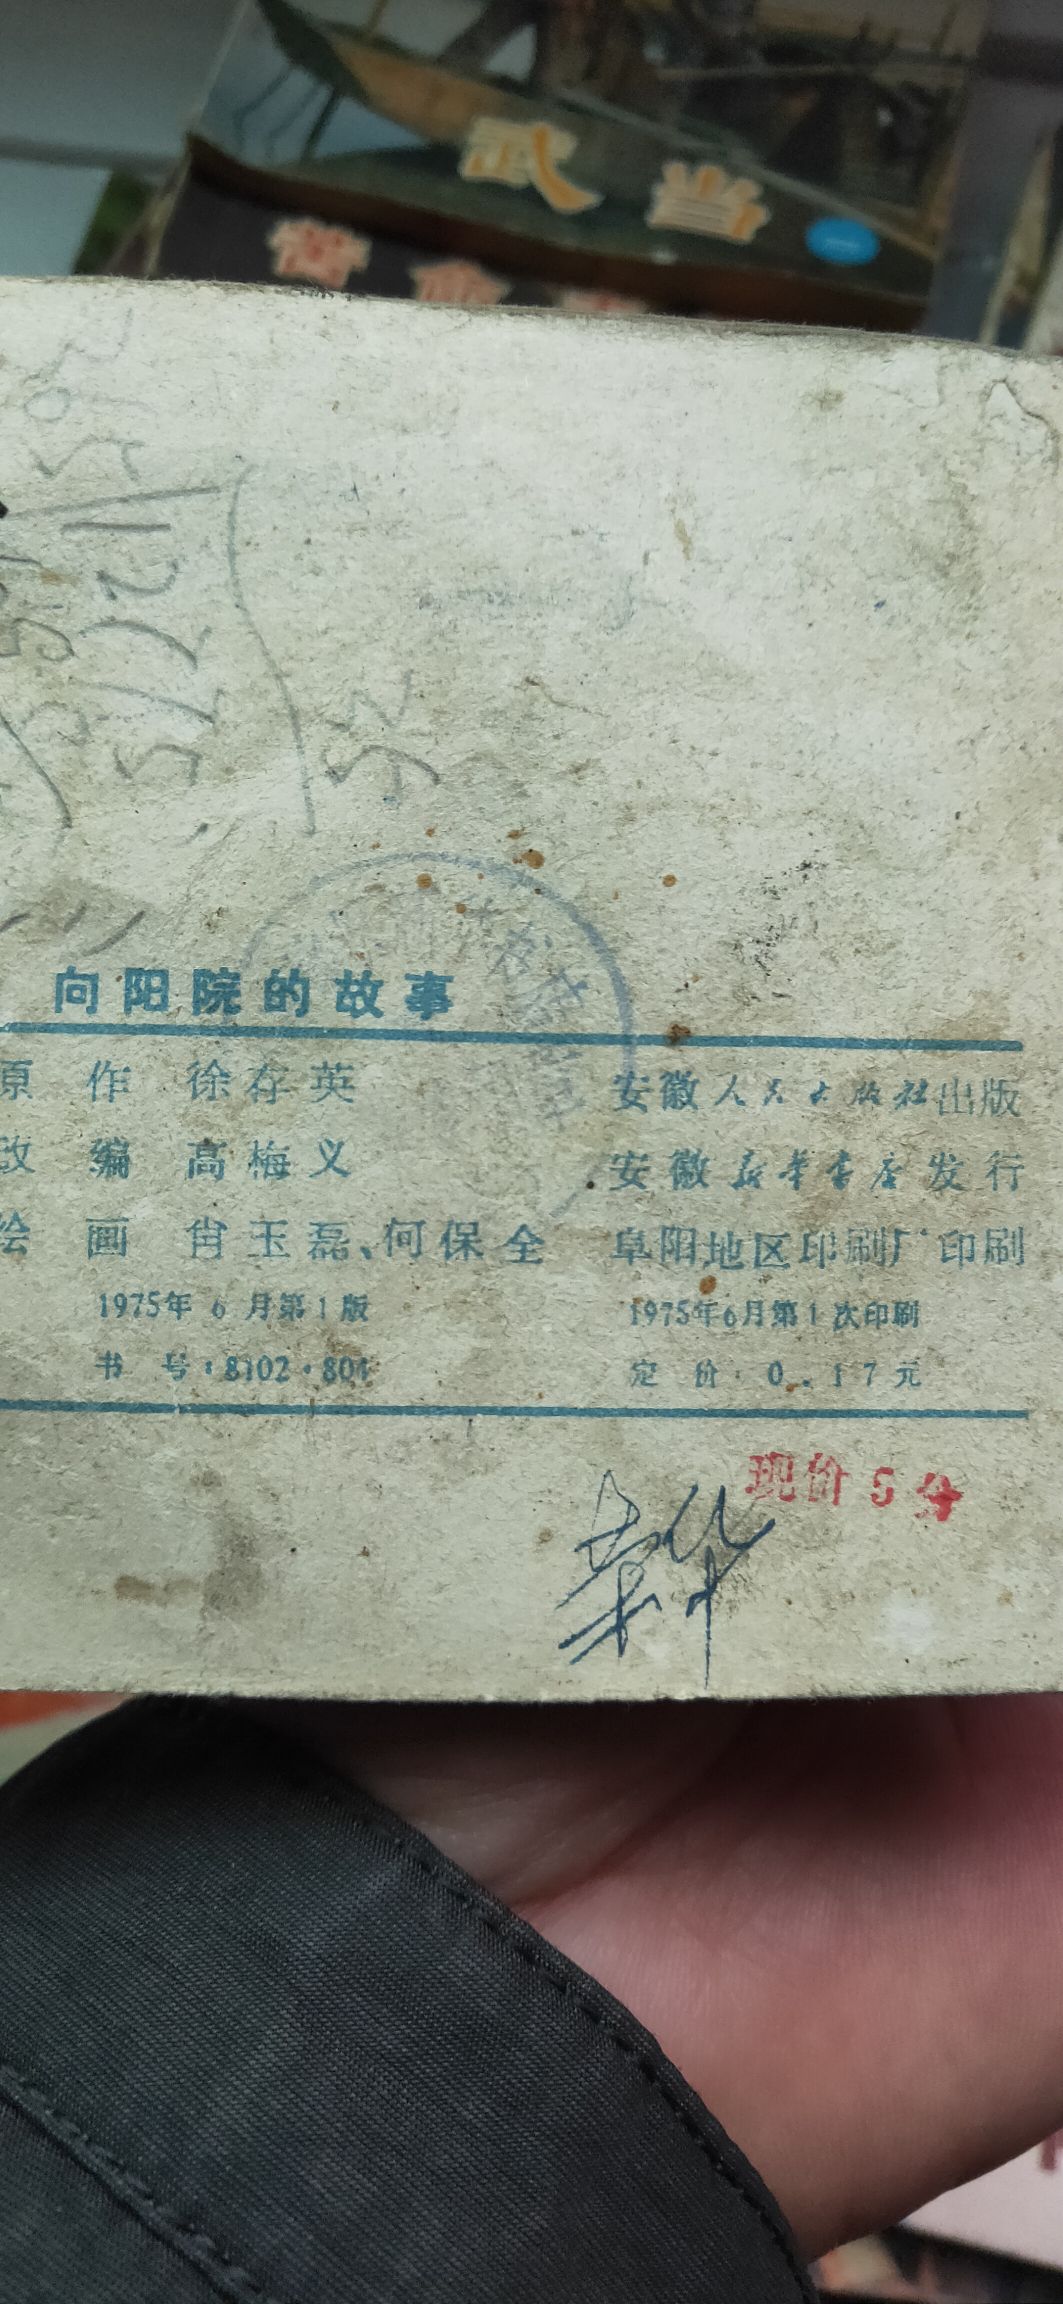 武当
向阳院的故事
原 作 徐存英
改 编 高梅义
绘 画 肖玉磊、何保全
1975年6月第1版
书 号:8102·804
安徽人民出版社出版
安徽新华书店发行
阜阳地区印刷厂印刷
1975年6月第1次印刷
定 价:0.17元
现价5分